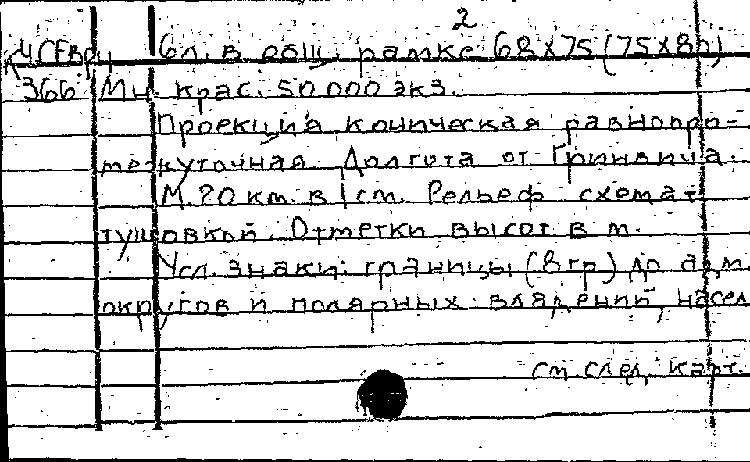 2
6 л. в общ. рамке 68х75 (75х80)
366 Мн. крас. 50 000 экз.
Проекция коническая равнопро-
межуточная. Долгота от Гринвича.
М. 20 км. в 1 см. Рельеф схемат
тушовкой. Отметки высот в м.
Усл. знаки: границы (8 гр) до адм.
округов и полярных владений, насел
см след. карт.